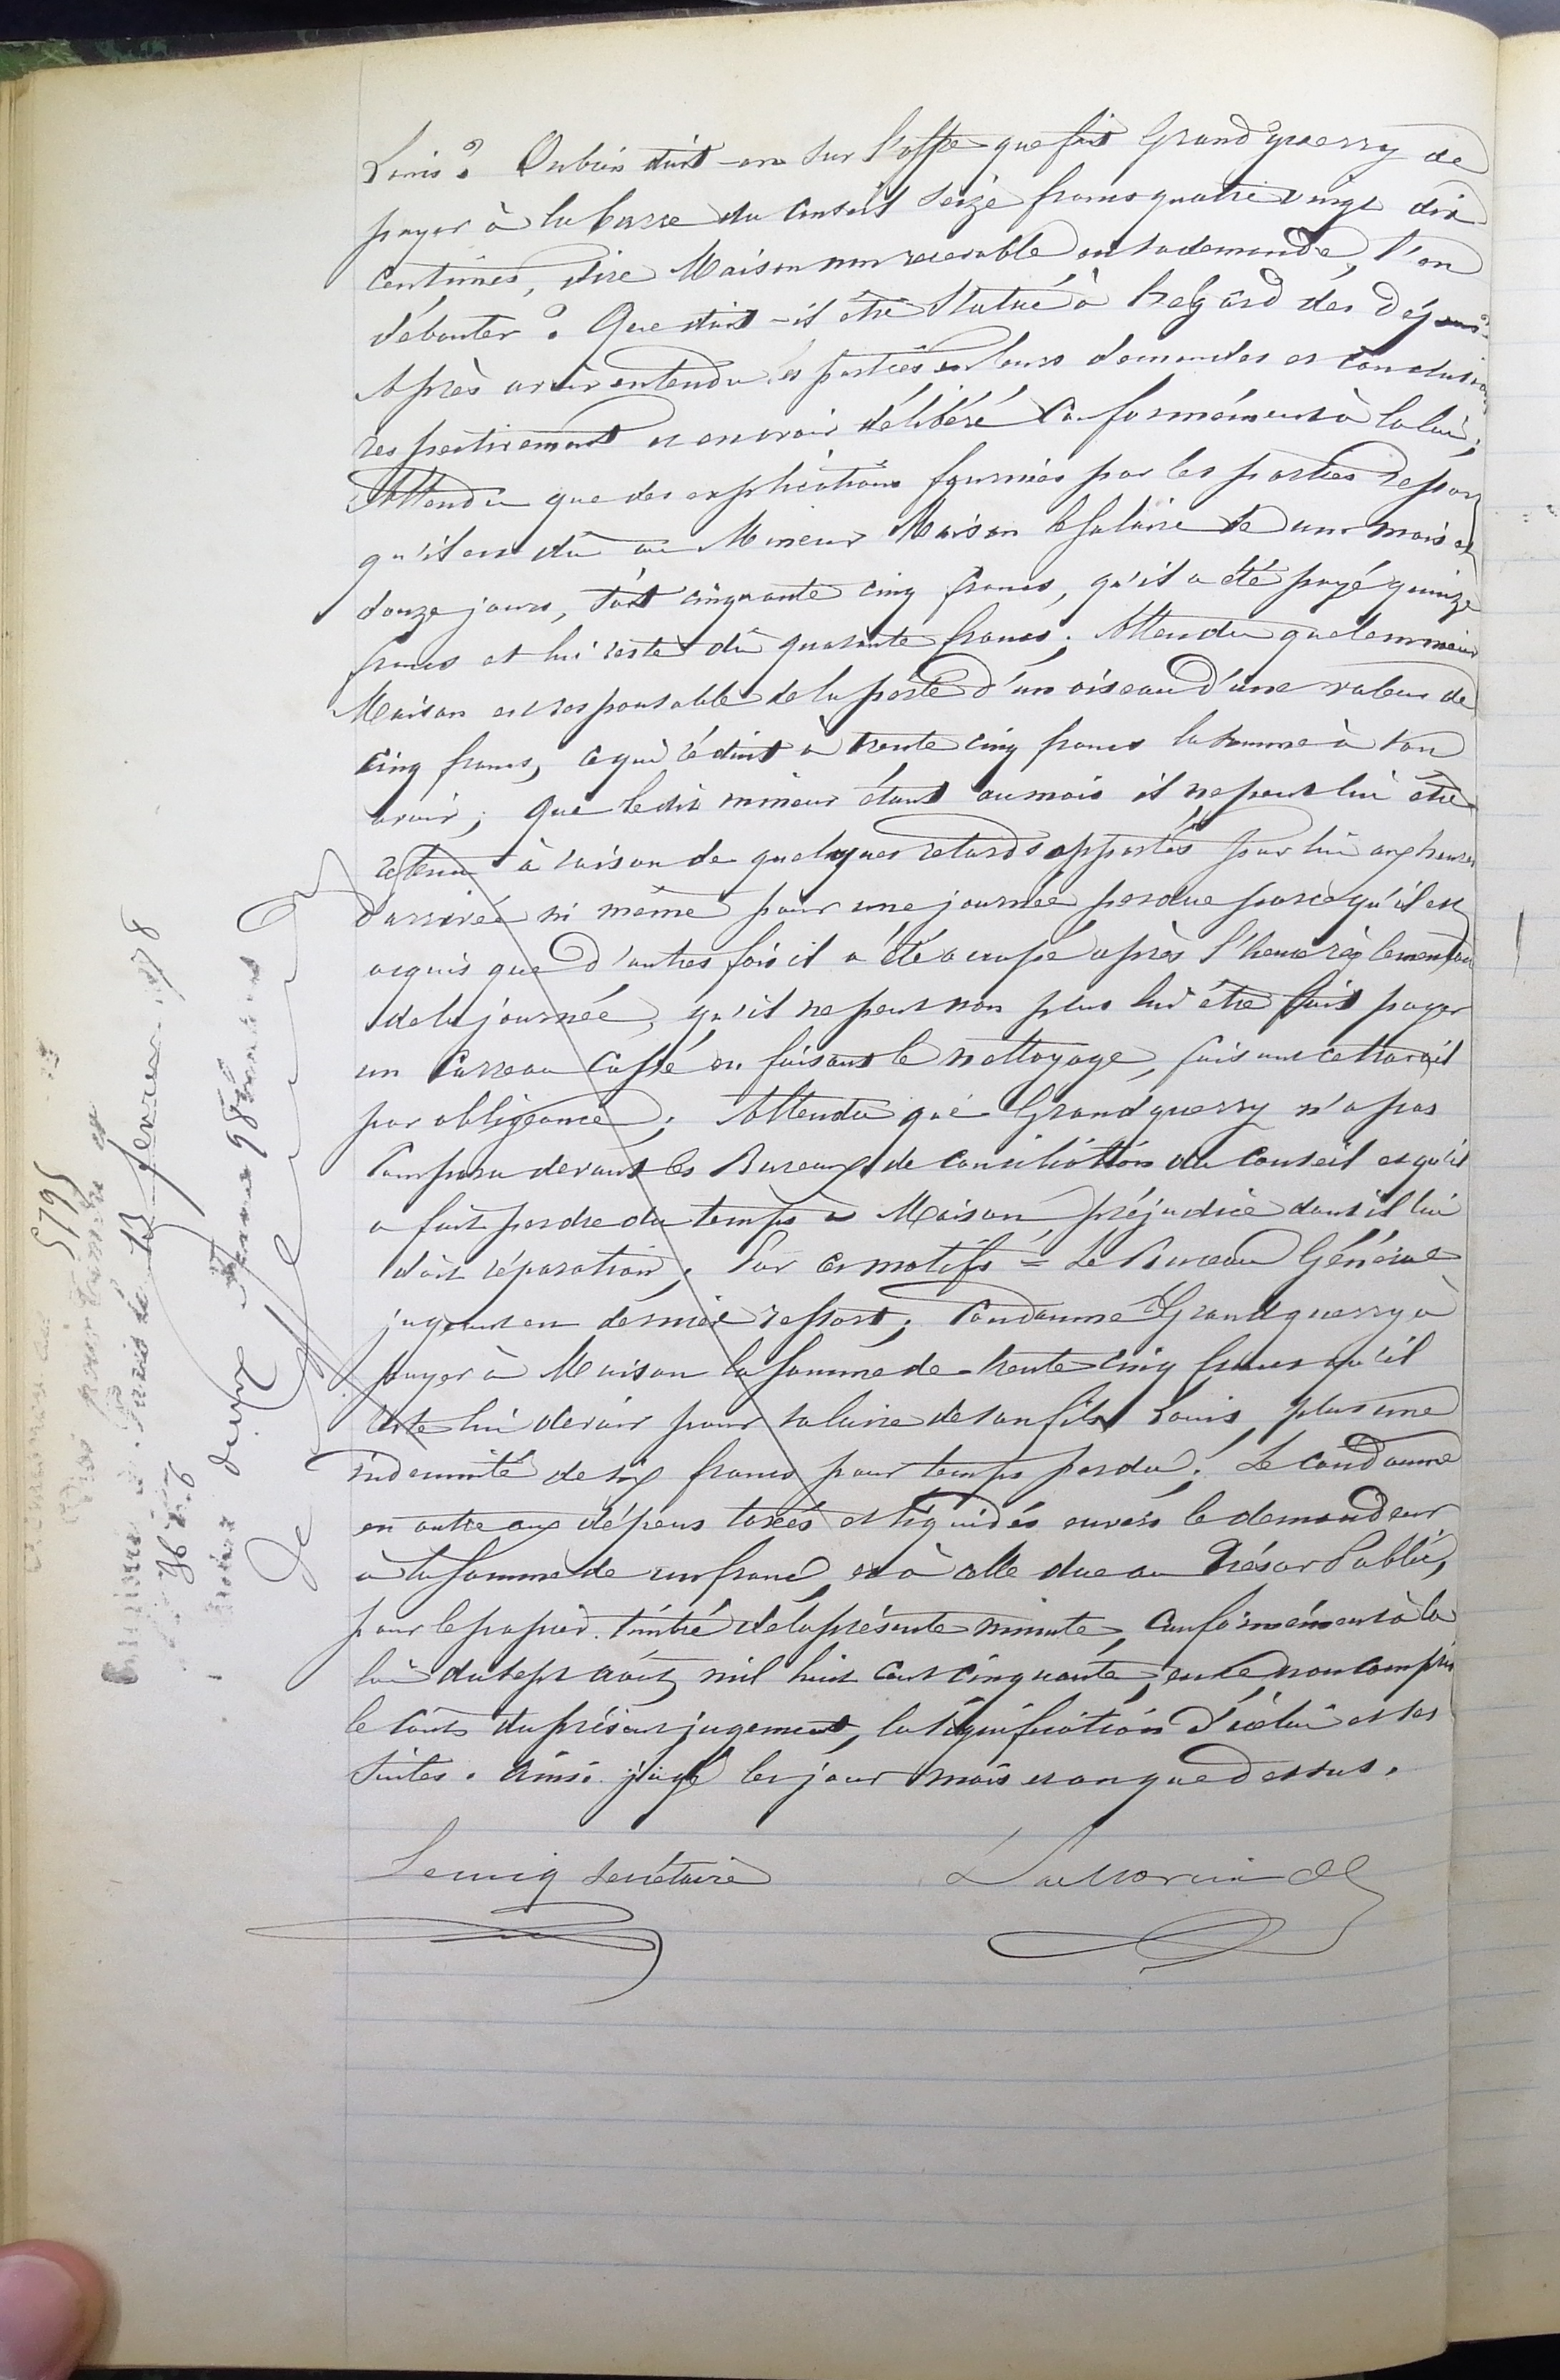 Louis ? Ou bien doit-on sur l'offre que fait Grandguerry de
payer à la barre du Conseil Seize francs quatre vingt dix
centimes, dire Maison non recevable en sa demande, l'en
débouter ? Que doit-il être Statué à l'égard des dépens ?
Après avoir entendu les parties en leurs demandes et conclusions
respectivement et en avoir délibéré Conformément à la loi ;
Attendu que des explications fournies par les parties ressort
qu'il est dû au Mineur Maison le salaire de un mois et
douze jours, soit cinquante cinq francs, qu'il a été payé quinze
francs et lui reste dû quarante francs. Attendu que le mineur
Maison est responsable de la perte d'un oiseau d'une valeur de
cinq francs, ce qui réduit à trente cinq francs la somme à son
avoir ; que le dit mineur étant au mois il ne peut lui être
retenu à raison de quelques retards apportés par lui aux heures
d'arrivée ni même pour une journée perdue parce qu'il est
acquis que d'autres fois il a été occupé après l'heure règlementaire
de la journée, qu'il ne peut non plus lui être fait payer
un Carreau Cassé en faisant le nettoyage, faisant ce travail
par obligeance ; Attendu que Grandguerry n'a pas
Comparu devant les Bureaux de conciliation du Conseil et qu'il
a fait perdre du temps à Maison, préjudice dont il lui
doit réparation ; Par ces motifs = Le Bureau Général
jugeant en dernier ressort ; Condamne Grandguerry à
payer à Maison la somme de trente cinq francs qu'il
reste lui devoir pour salaire de son fils Louis, plus une
indemnité de six francs pour temps perdu ; Le condamne
en outre aux dépens taxés et liquidés envers le demandeur
à la somme de un franc, et à celle due au Trésor Public,
pour le papier timbré de la présente minute, conformément à la
loi du sept août mil huit cent cinquante, en ce non compris
le coût du présent jugement, la signification d'icelui et ses
suites. Ainsi jugé les jour mois et an que dessus.
secrétaire